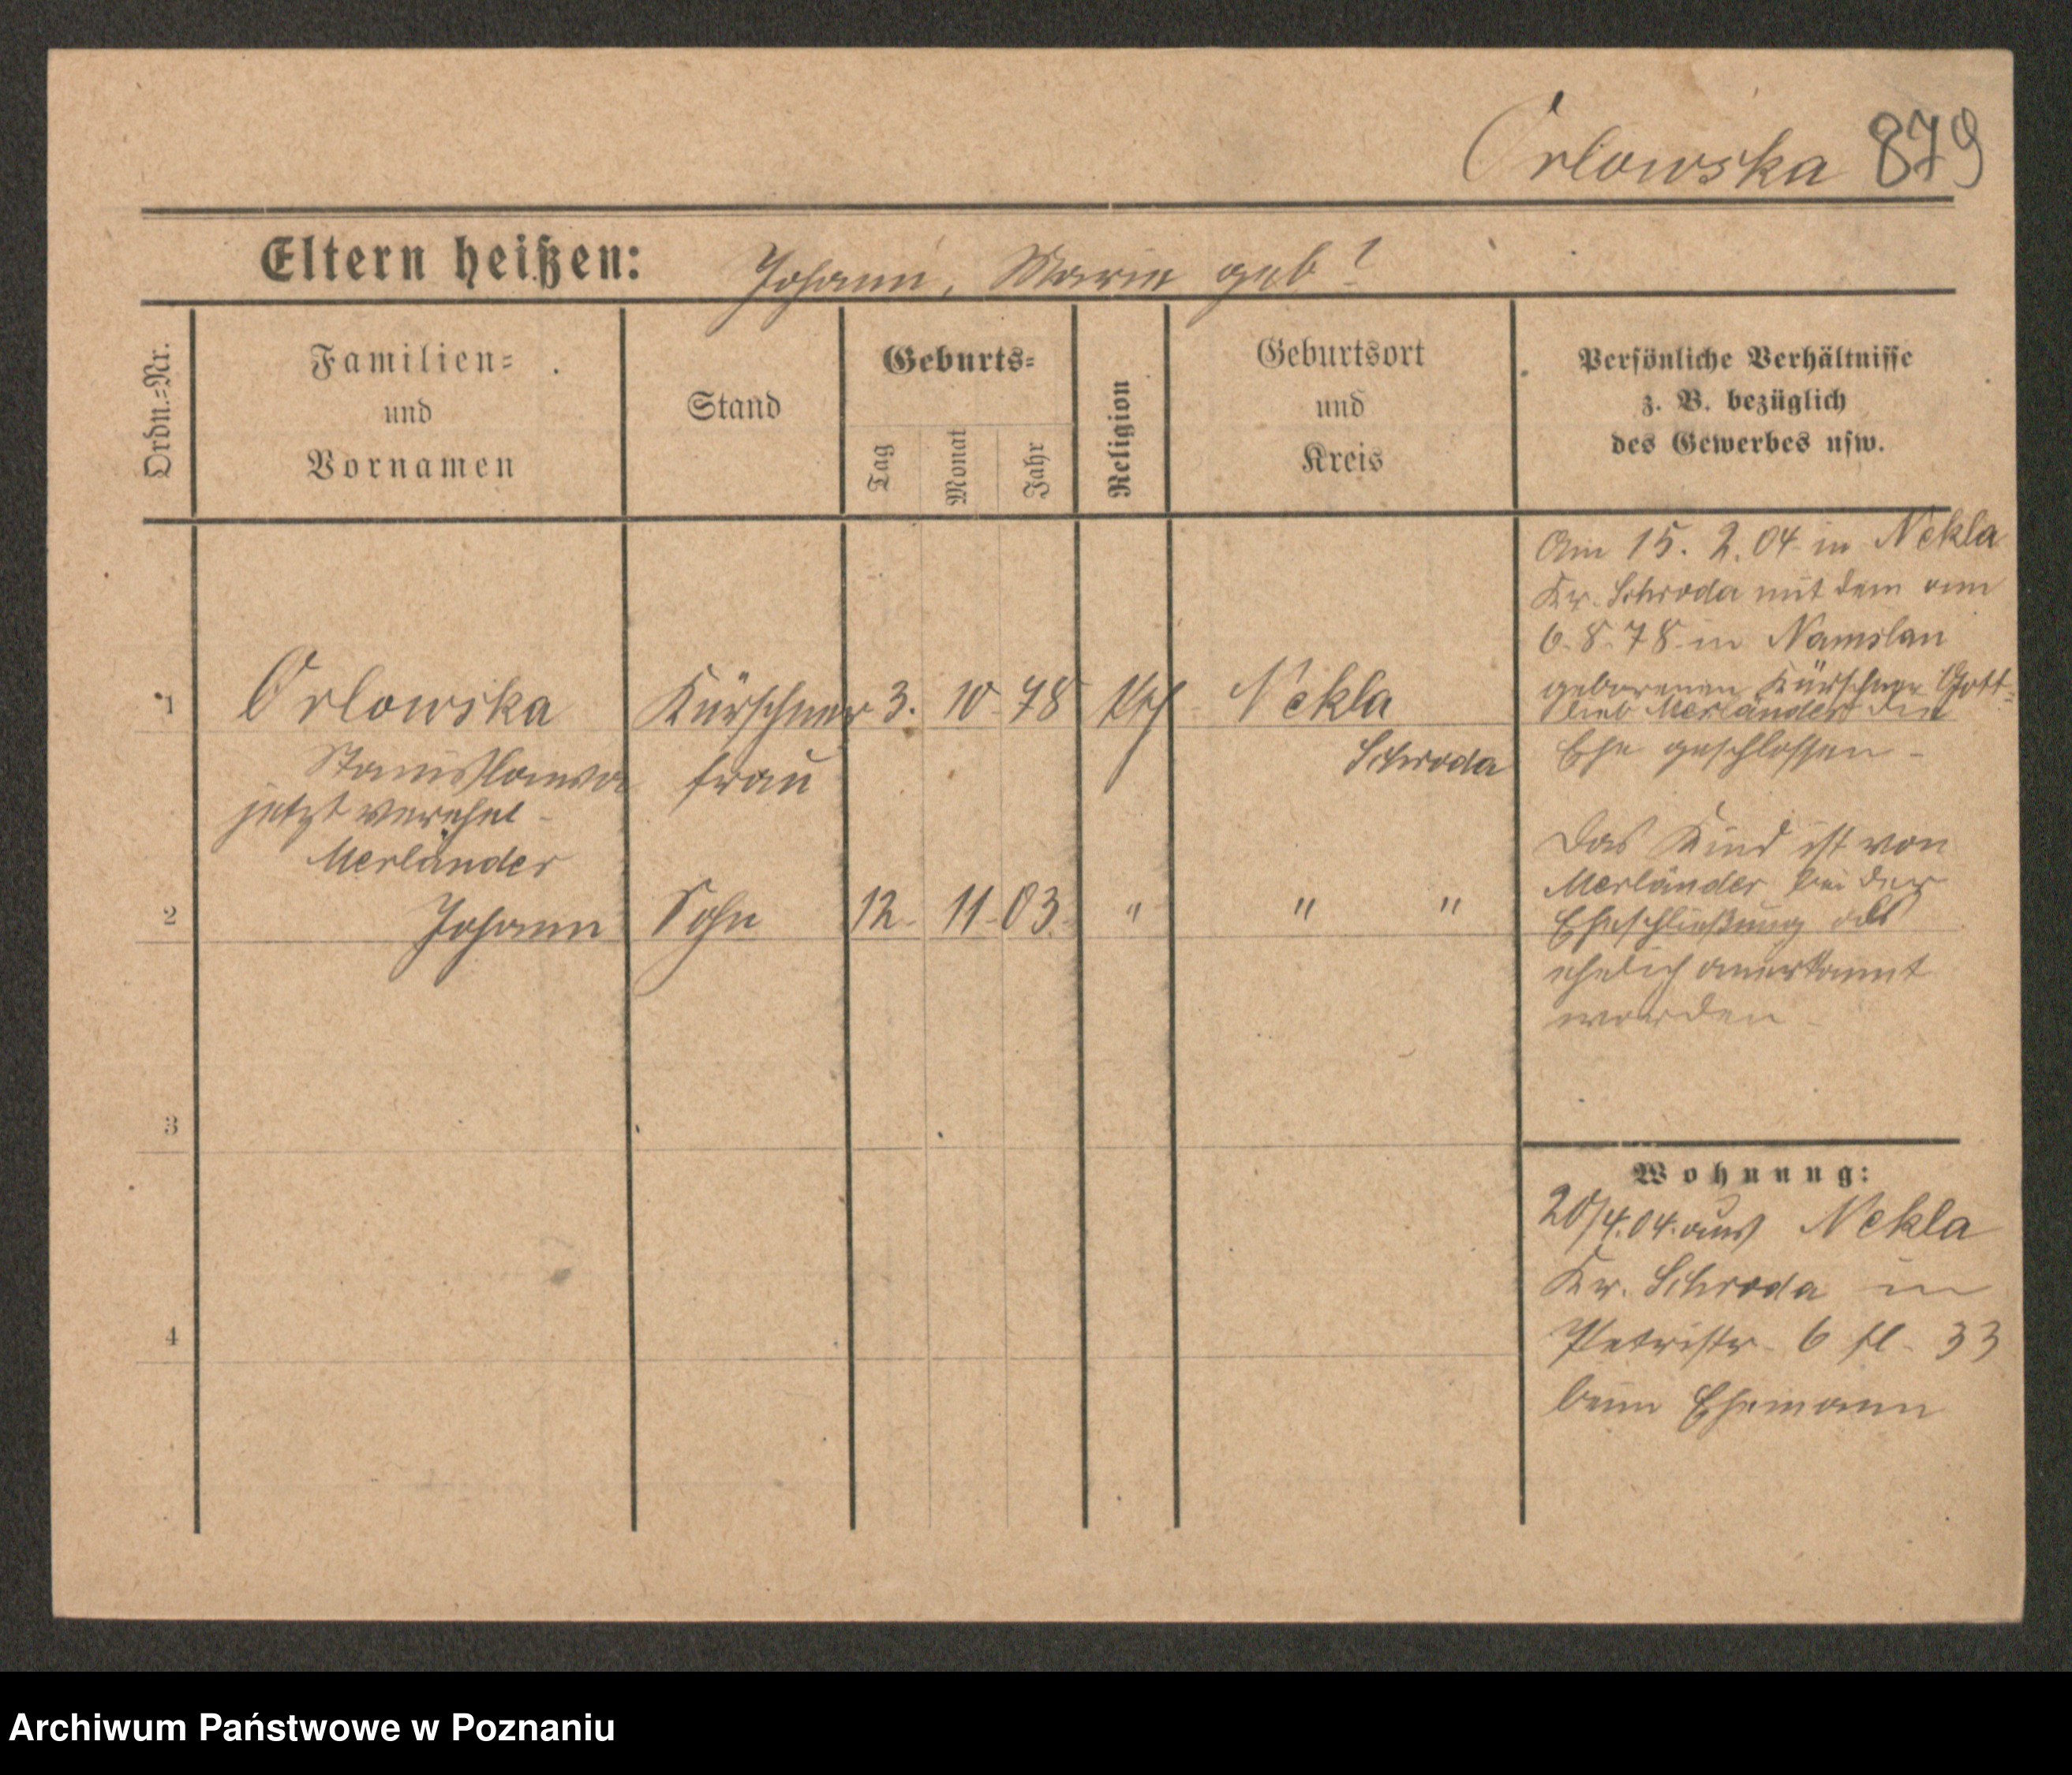 Orlowska 879
Eltern heißen: Johann, Marie geb?
Ordn.=Nr.
Familien=
und
Vornamen
Stand
Geburts=
Tag
Monat
Jahr
Religion
Geburtsort
und
Kreis
Persönliche Verhältnisse
z. B. bezüglich
des Gewerbes usw.
1 Orlowska Kürschner 3. 10. 78 kth Nekla
Stanislawa frau Schroda
jetzt verehel.
Merländer
2 Johann Sohn 12. 11. 03. " " "
3
4
Am 15. 2. 04 in Nekla
Kr. Schroda mit dem am
6. 8. 78 in Namslau
geborenen Kürschner Gott=
lieb Merländer die
Ehe geschlossen.
Das Kind ist von
Merländer bei der
Eheschließung als
ehelich anerkannt
worden.
Wohnung:
20/4. 04. aus Nekla
Kr. Schroda in
Petristr. 6 fl. 33
beim Ehemann
Archiwum Państwowe w Poznaniu